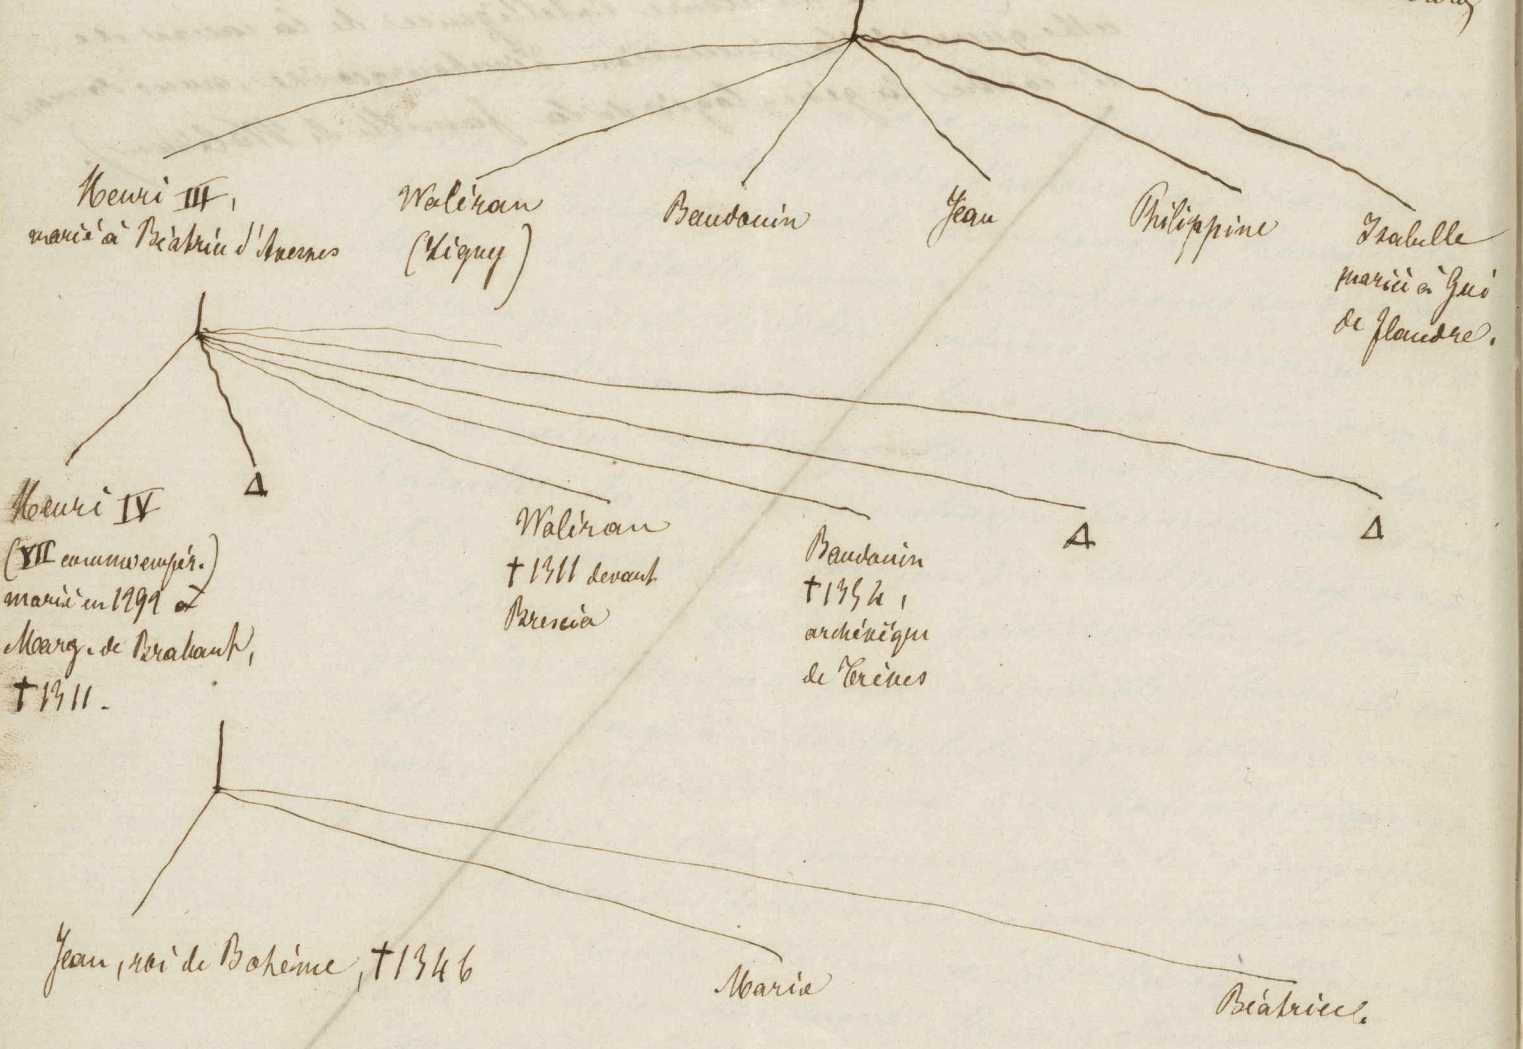 Henri III,
marié à Béatrix d'Avesnes
Waléran
(Ligny)
Baudouin
Jean
Philippine
Isabelle
mariée à Gui
de Flandre.
Henri IV
(VII comme empér.)
marié en 1292 à
Marg. de Brabant,
† 1311.
Δ
Waléran
† 1311 devant
Brescia
Baudouin
† 1354,
archévêque
de Trèves
Δ
Δ
Jean, roi de Bohéme, † 1346
Marie
Béatrice.